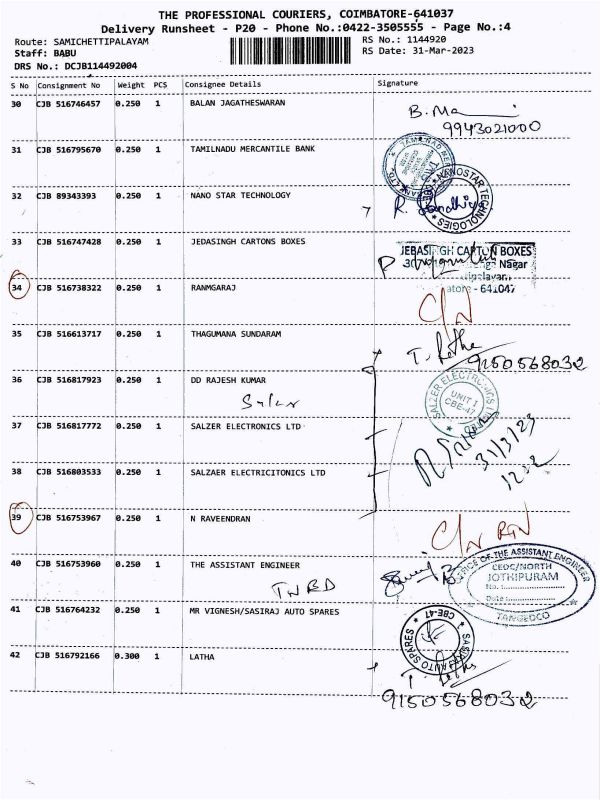 THE PROFESSIONAL COURIERS, COIMBATORE-641037
Delivery Runsheet - P20 - Phone No.:0422-3505555 - Page No.:4
Route: SAMICHETTIPALAYAM
RS No.: 1144920
Staff: BABU
RS Date: 31-Mar-2023
DRS No.: DCJB114492004
S No Consignment No Weight PCS Consignee Details Signature
30 CJB 516746457 0.250 1 BALAN JAGATHESWARAN
9943021000
31 CJB 516795670 0.250 1 TAMILNADU MERCANTILE BANK
32 CJB 89343393 0.250 1 NANO STAR TECHNOLOGY
NANOSTAR TECHNOLOGIES
33 CJB 516747428 0.250 1 JEDASINGH CARTONS BOXES
CARTON BOXES
Nagar
- 641047
34 CJB 516738322 0.250 1 RANMGARAJ
C/N
35 CJB 516613717 0.250 1 THAGUMANA SUNDARAM
9150568032
36 CJB 516817923 0.250 1 DD RAJESH KUMAR
SALZER ELECTRONICS LIMITED
UNIT I
CBE-47
37 CJB 516817772 0.250 1 SALZER ELECTRONICS LTD
31/3/23
38 CJB 516803533 0.250 1 SALZAER ELECTRICITONICS LTD
39 CJB 516753967 0.250 1 N RAVEENDRAN
C/N
40 CJB 516753960 0.250 1 THE ASSISTANT ENGINEER
OFFICE OF THE ASSISTANT ENGINEER
CEDC/NORTH
JOTHIPURAM
No.:
Date:
TANGEDCO
41 CJB 516764232 0.250 1 MR VIGNESH/SASIRAJ AUTO SPARES
CBE-47
AUTO SPARES
42 CJB 516792166 0.300 1 LATHA
9150568032